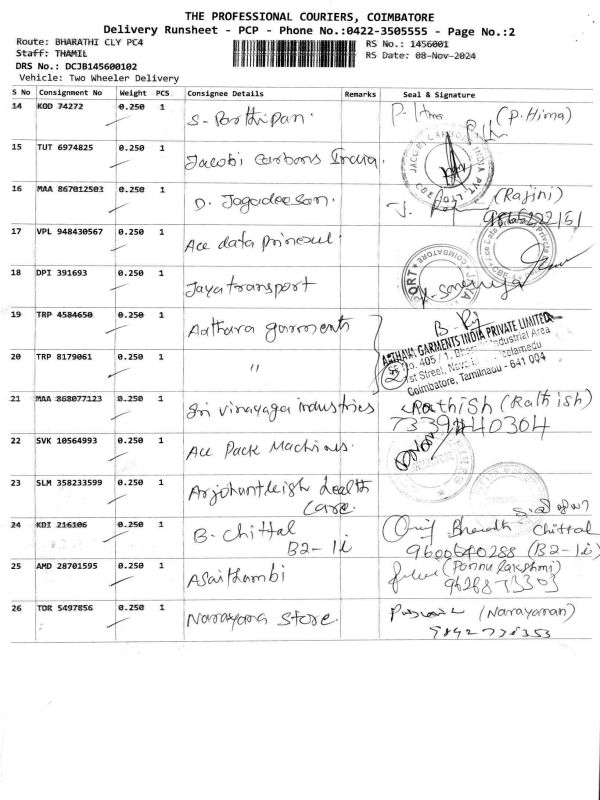 THE PROFESSIONAL COURIERS, COIMBATORE
Delivery Runsheet - PCP - Phone No.:0422-3505555 - Page No.:2
Route: BHARATHI CLY PC4
RS No.: 1456001
Staff: THAMIL
RS Date: 08-Nov-2024
DRS No.: DCJB145600102
Vehicle: Two Wheeler Delivery
S No Consignment No Weight PCS Consignee Details Remarks Seal & Signature
14 KOD 74272 0.250 1 S. Parthipan. P. Hima (P. Hima)
15 TUT 6974825 0.250 1 Jacobi Carbons India.
16 MAA 867012503 0.250 1 D. Jagadeesan. (Rajini)
17 VPL 948430567 0.250 1 Ace data
18 DPI 391693 0.250 1 Jaya transport
19 TRP 4584650 0.250 1 Aathava garments
AATHAVA GARMENTS INDIA PRIVATE LIMITED
20 TRP 8179061 0.250 1 "
Coimbatore, Tamilnadu - 641 004
21 MAA 868077123 0.250 1 Sri vinayaga industries RathiSh (Rathish)
22 SVK 10564993 0.250 1 Ace Pack Machines.
23 SLM 358233599 0.250 1 Arjohuntleigh health
care.
24 KDI 216106 0.250 1 B. Chittal Bharath Chittal
B2-1i 9600640288 (B2-1i)
25 AMD 28701595 0.250 1 Asaithambi (Ponnulakshmi)
26 TOR 5497856 0.250 1 Narayana Store. (Narayanan)